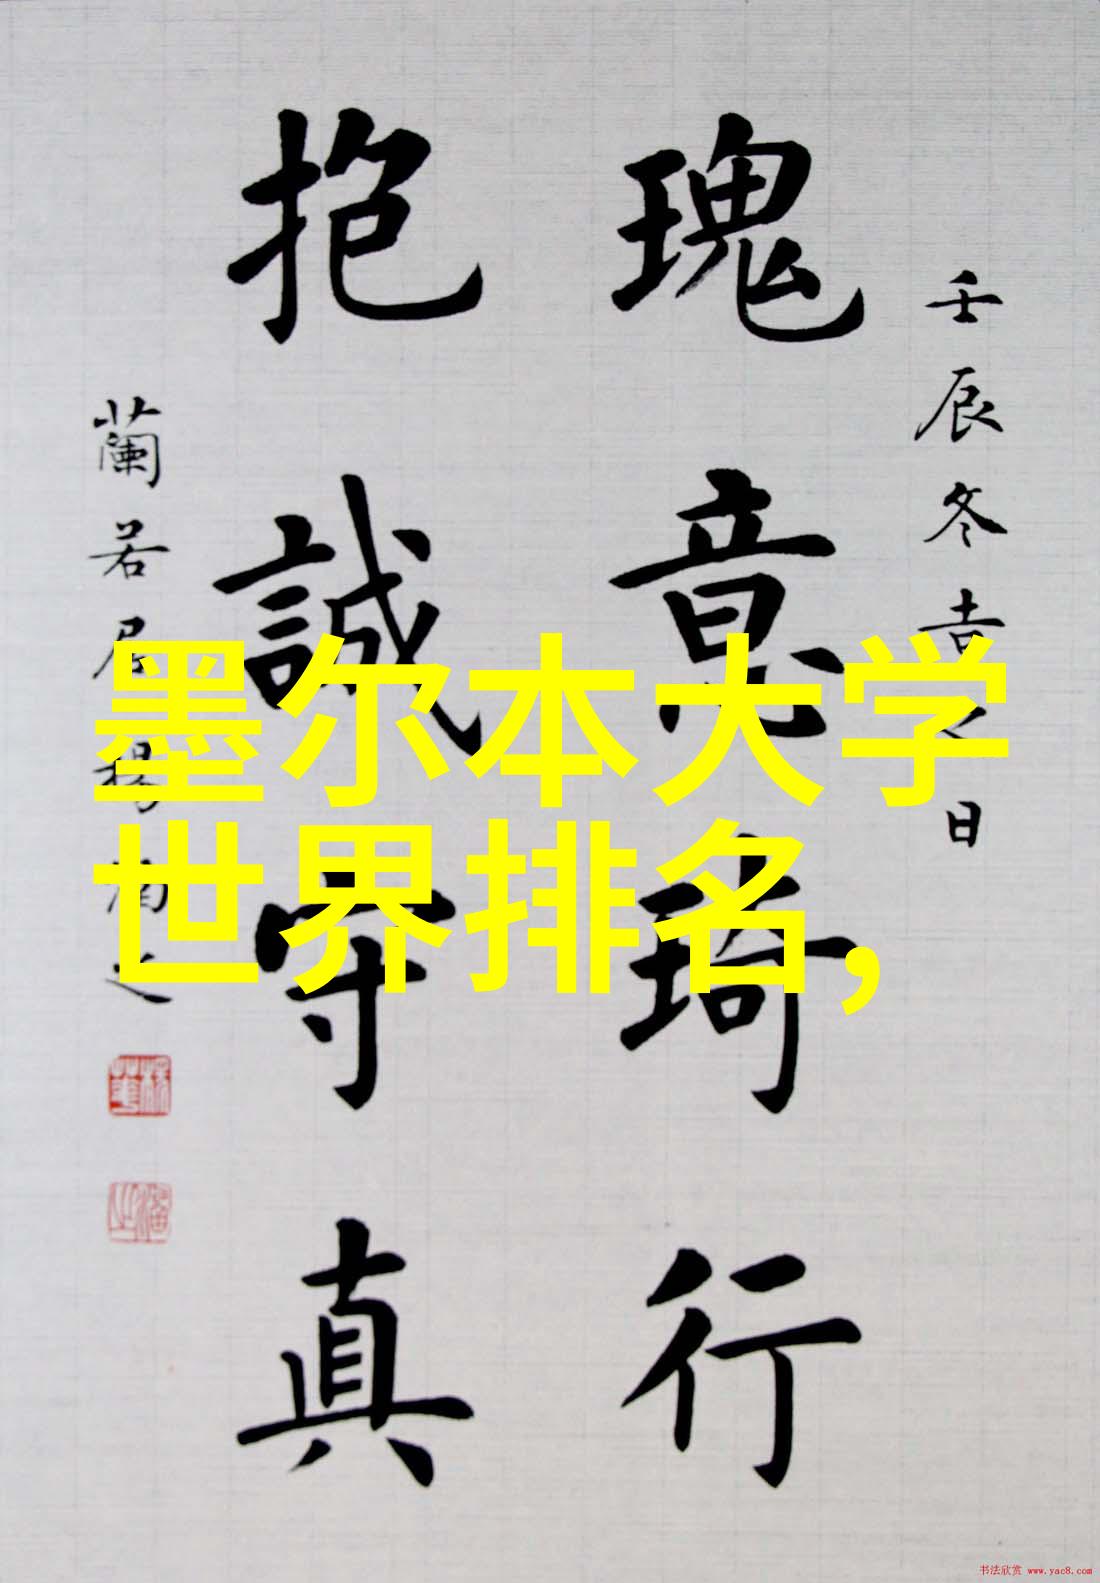 壬辰冬吉日
瑰意琦行
抱誠守真
蘭若居
墨尔本大学
世界排名,
书法欣赏 www.yac8.com